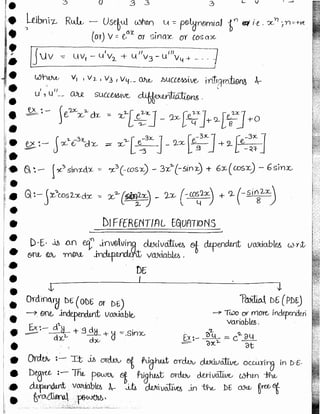 Leibniz Rule — Useful when u = polynomial fⁿ ie. xⁿ ; n=+ve
(or) V = e^ax or sinax or cosax
∫uv = uv₁ - u'v₂ + u''v₃ - u'''v₄ + ....
where v₁, v₂, v₃, v₄... are successive integrations &
u', u''... are successive differentiations.
ex:- ∫e^2x x² dx = x²[e^2x/2] - 2x[e^2x/4] + 2[e^2x/8] + 0
ex:- ∫x² e^-3x dx = x²[e^-3x/-3] - 2x[e^-3x/9] + 2[e^-3x/-27]
Q:- ∫x³ sinx dx = x³(-cosx) - 3x²(-sinx) + 6x(cosx) - 6 sinx
Q:- ∫x² cos2x dx = x²(sin2x/2) - 2x(-cos2x/4) + 2(-sin2x/8)
DIFFERENTIAL EQUATIONS
D.E. is an eqⁿ involving derivatives of dependent variables w.r.t
one or more independent variables.
DE
Ordinary DE (ODE or DE)
Partial DE (PDE)
→ one independent variable
→ Two or more independent
variables.
Ex:- d²y/dx² + 9dy/dx + y = sinx
Ex:- ∂²u/∂x² = c² ∂u/∂t
Order :- It is order of highest order derivative occuring in D.E.
Degree :- The power of highest order derivative when the
dependent variables & its derivatives in the DE are free of
fractional powers.